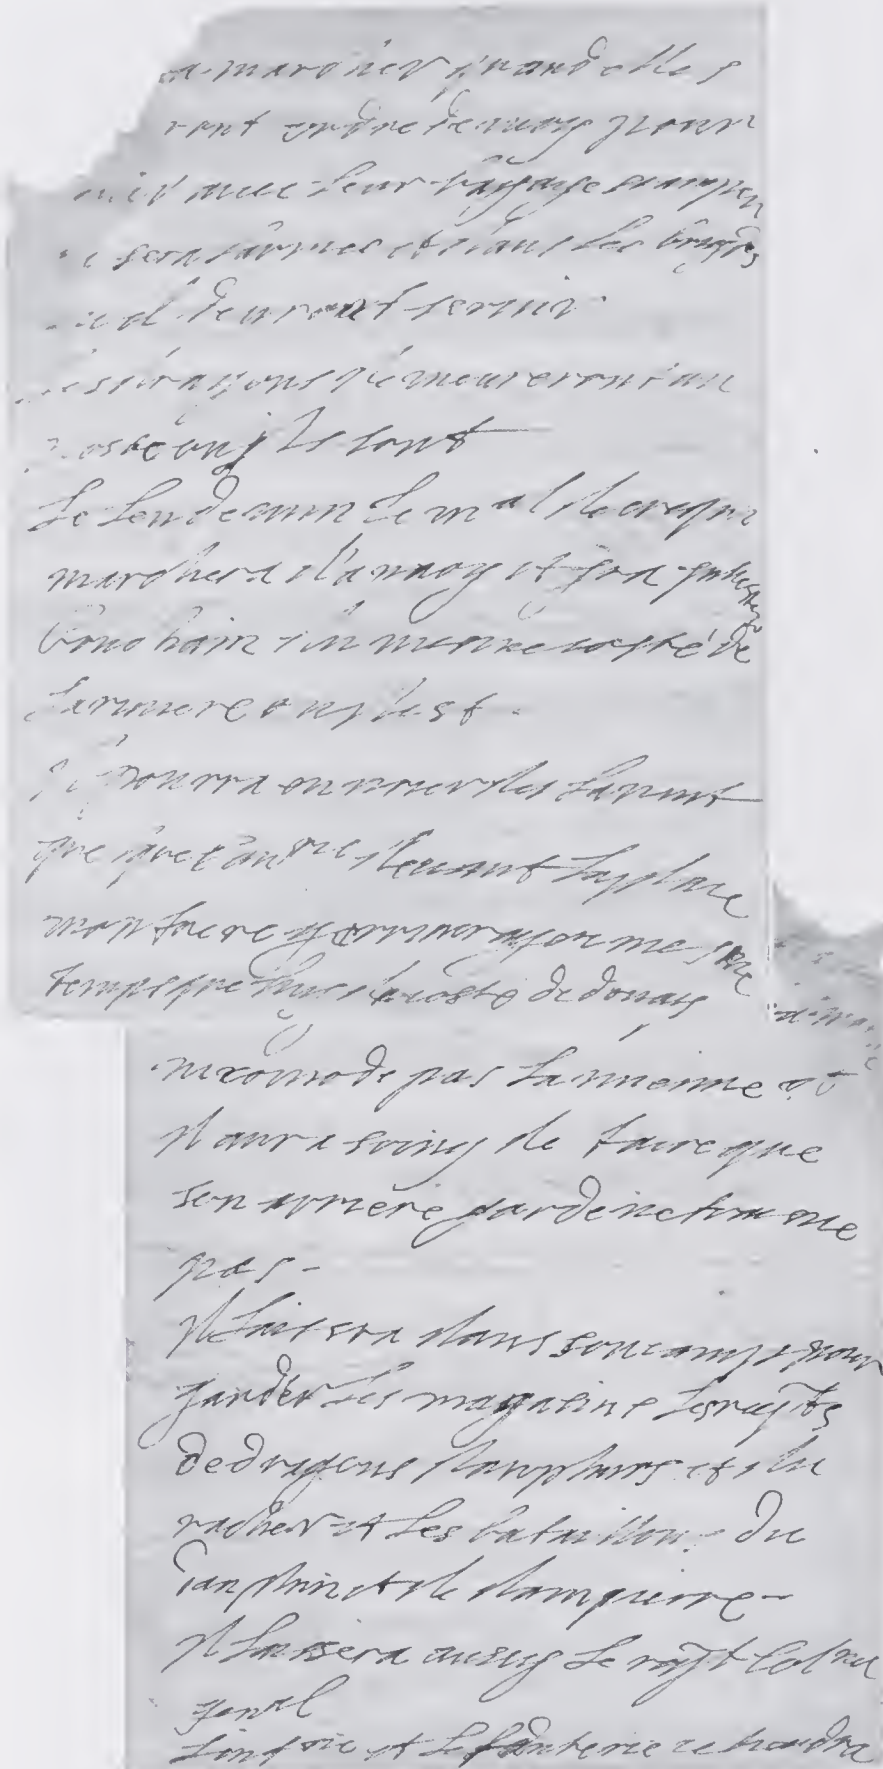 a marcher quand elles
ront ordre de moy pour
nir avec leur bagage
sera larmee et dans les brigdes
deuront seruir
es dragons demeureront au
poste ou jls sont
Le Lendemain Le mal de crequi
marchera d'annoy et fera
bouchain du mesme costé de
La riuiere ou jl est
jl pourra enuoier des La nuit
que que cauerie deuant La place
mon frere y arriuera en mesme
temps que luy du costé de douay
nicomode pas La mienne et
jl aura soing de faire que
son arriere garde ne
pas
jl Laissera dans son camp pour
garder Les magasins Les regts
de dragons dauphins et du
racher et Les bataillons du
dauphin et de dampierre
jl Laissera aussy Le regt Colnel
genal
et Lefanterie ce tiendra